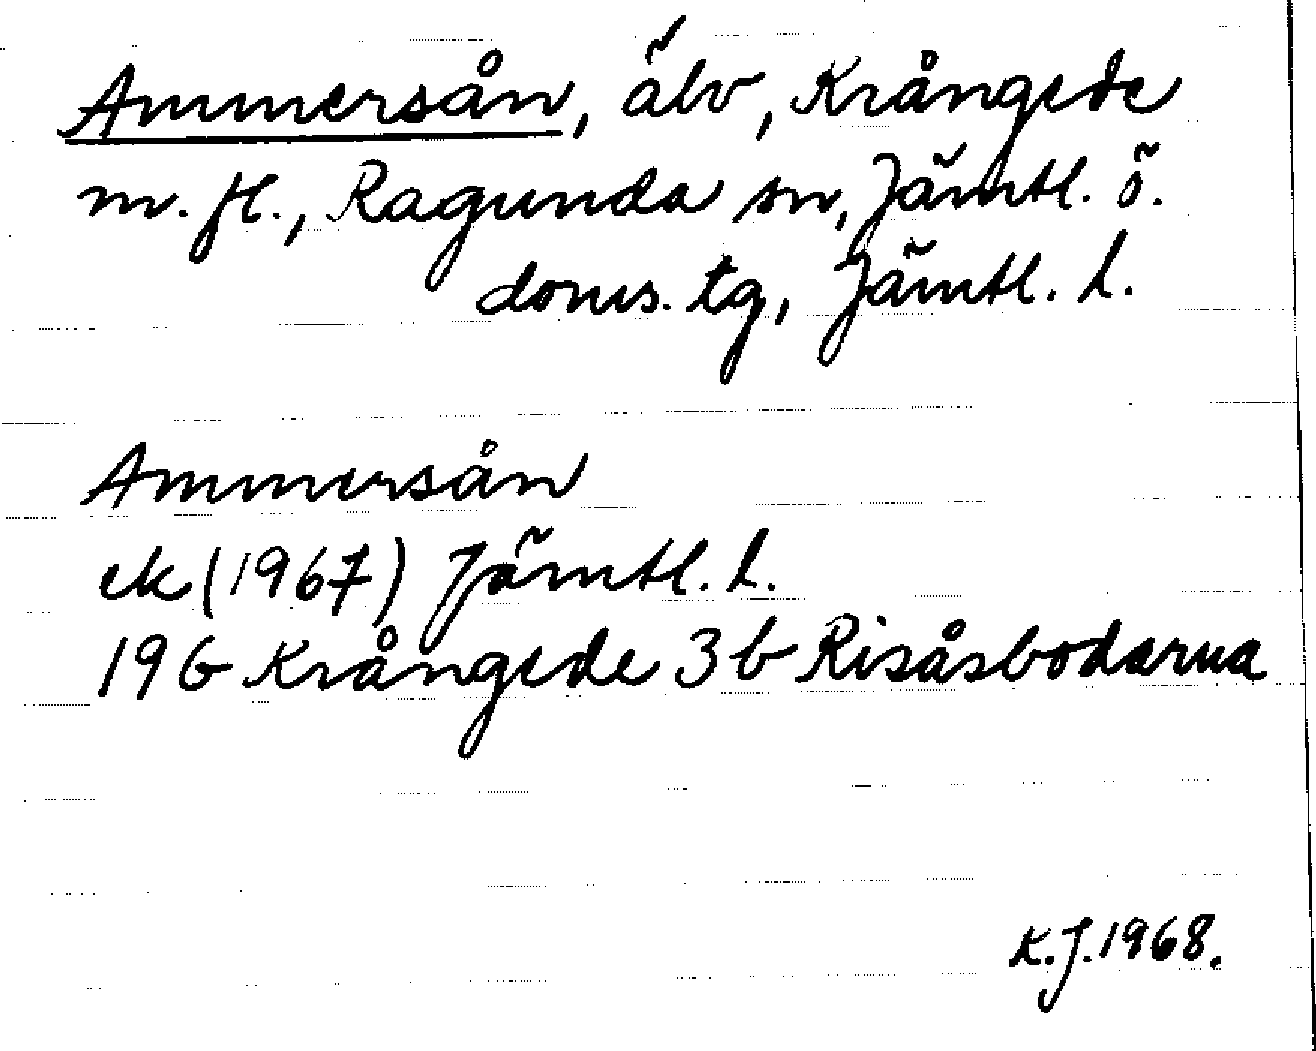 Ammersån, älv, Krångede
m. fl., Ragunda sn, Jämtl. ö.
doms. tg, Jämtl. l.
Ammersån
ek (1967) Jämtl. l.
19G Krångede 3b Risåsbodarna
K.J. 1968.